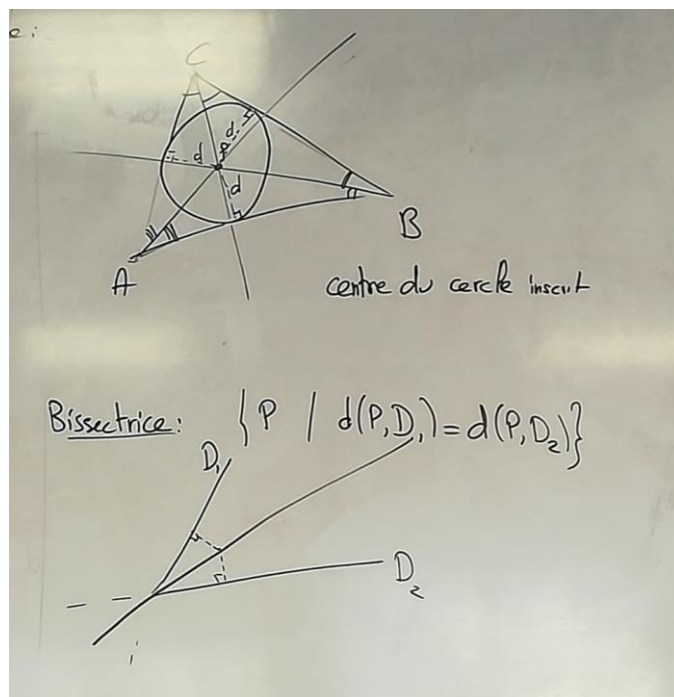 e:
C
d
P
d
d
B
A
centre du cercle inscrit
Bissectrice: {P / d(P,D₁)=d(P,D₂)}
D₁
D₂